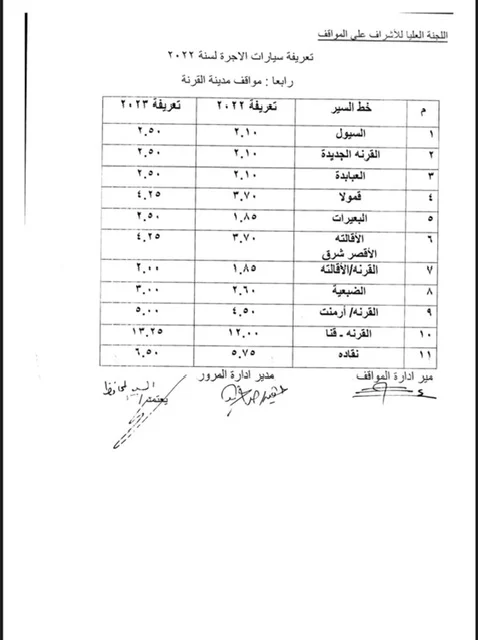 اللجنة العليا للأشراف علي المواقف
تعريفة سيارات الاجرة لسنة ٢٠٢٢
رابعا : مواقف مدينة القرنة
م خط السير تعريفة ٢٠٢٢ تعريفة ٢٠٢٣
١ السيول ٢.١٠ ٢.٥٠
٢ القرنه الجديدة ٢.١٠ ٢.٥٠
٣ العبابدة ٢.١٠ ٢.٥٠
٤ قمولا ٣.٧٠ ٤.٢٥
٥ البعيرات ١.٨٥ ٢.٥٠
٦ الأقالته ٣.٧٠ ٤.٢٥
الأقصر شرق
٧ القرنه/الأقالته ١.٨٥ ٢.٠٠
٨ الضبعية ٢.٦٠ ٣.٠٠
٩ القرنه/ أرمنت ٤.٥٠ ٥.٠٠
١٠ القرنه - قنا ١٢.٠٠ ١٣.٢٥
١١ نقاده ٥.٧٥ ٦.٥٠
مير ادارة المواقف مدير ادارة المرور السيد المحافظ
يعتمد